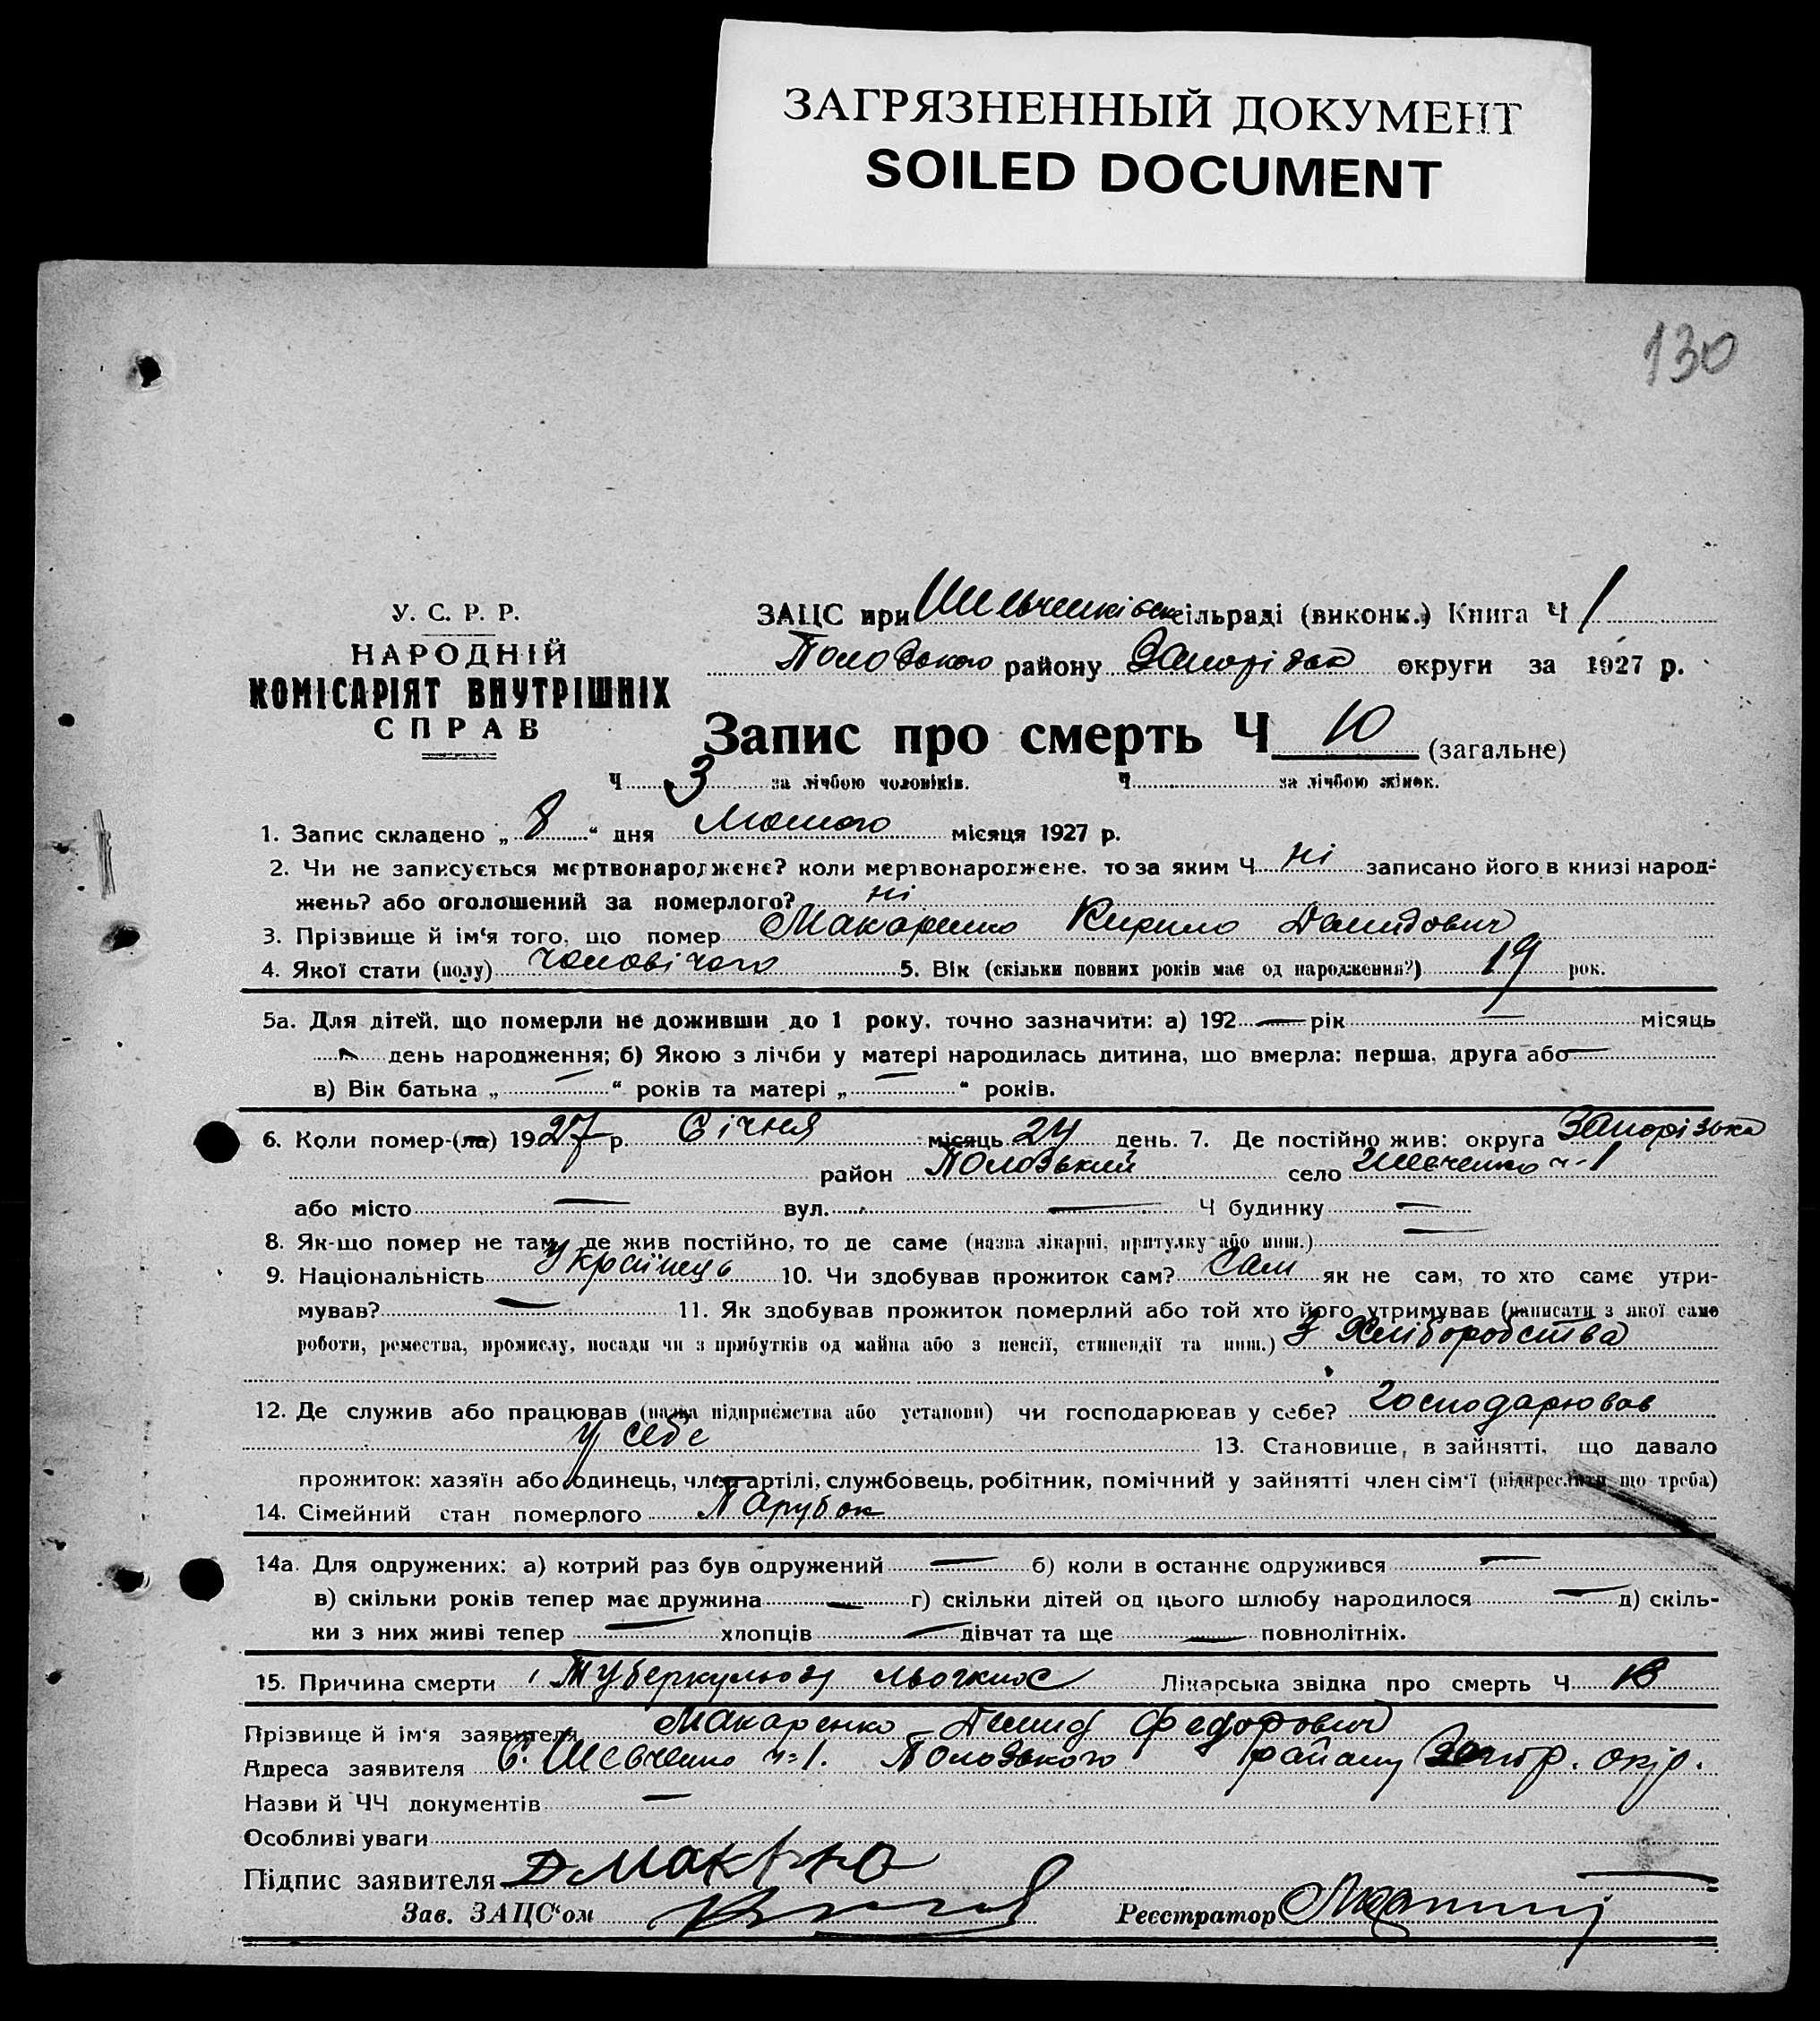 ЗАГРЯЗНЕННЫЙ ДОКУМЕНТ
SOILED DOCUMENT
130
У. С. Р. Р.
НАРОДНІЙ
КОМІСАРІЯТ ВНУТРІШНІХ
СПРАВ
ЗАЦС при Шевченківск сільраді (виконк.) Книга Ч 1
Пологського району Запорізьк округи за 1927 р.
Запис про смерть Ч 10 (загальне)
Ч 3 за лічбою чоловіків. Ч за лічбою жінок.
1. Запис складено „ 8 “ дня Лютого місяця 1927 р.
2. Чи не записується мертвонароджене? коли мертвонароджене, то за яким Ч ні записано його в книзі народ-
жень? або оголошений за померлого? ні
3. Прізвище й ім‘я того, що помер Макаренко Кирило Демидович
4. Якої стати (полу) чоловічого 5. Вік (скільки повних років має од народження?) 19 рок.
5а. Для дітей, що померли не доживши до 1 року, точно зазначити: а) 192 — рік — місяць
день народження; б) Якою з лічби у матері народилась дитина, що вмерла: перша, друга або —
в) Вік батька „ — “ років та матері „ — “ років.
6. Коли помер-(ла) 1927 р. Січня місяць 24 день. 7. Де постійно жив: округа Запорізька
район Пологський село Шевченко ч-1
або місто — вул. — Ч будинку —
8. Як-що помер не там, де жив постійно, то де саме (назва лікарні, притулку або инш.) —
9. Національність Українець 10. Чи здобував прожиток сам? Сам як не сам, то хто саме утри-
мував? — 11. Як здобував прожиток померлий або той хто його утримував (написати з якої саме
роботи, ремества, промислу, посади чи з прибутків од майна або з пенсії, стипендії та инш.) З Хліборобства
12. Де служив або працював (назва підприємства або установи) чи господарював у себе? Господарював
у себе 13. Становище, в зайнятті, що давало
прожиток: хазяїн або одинець, член артілі, службовець, робітник, помічний у зайнятті член сім‘ї (підкреслити що треба)
14. Сімейний стан померлого Парубок
14а. Для одружених: а) котрий раз був одружений — б) коли в останнє одружився —
в) скільки років тепер має дружина — г) скільки дітей од цього шлюбу народилося — д) скіль-
ки з них живі тепер — хлопців — дівчат та ще — повнолітніх.
15. Причина смерти Туберкульоз Лікарська звідка про смерть Ч
Прізвище й ім‘я заявителя Макаренко Демид Федорович
Адреса заявителя С. Шевченко ч-1. Пологського району Запор. окр.
Назви й ЧЧ документів —
Особливі уваги
Підпис заявителя
Зав. ЗАЦС‘ом Реєстратор